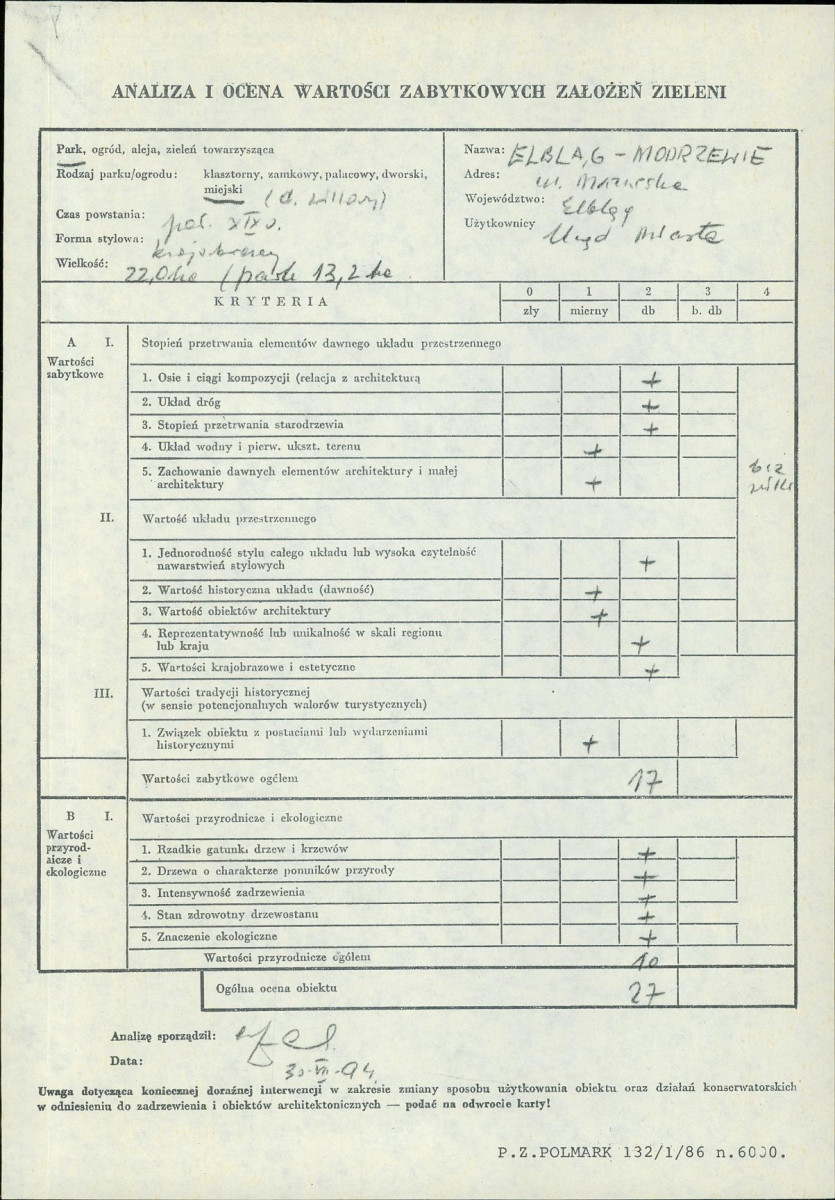 ANALIZA I OCENA WARTOŚCI ZABYTKOWYCH ZAŁOŻEŃ ZIELENI
Park, ogród, aleja, zieleń towarzysząca
Rodzaj parku/ogrodu: klasztorny, zamkowy, pałacowy, dworski,
miejski (d. willowy)
Czas powstania: poł. XIX w.
Forma stylowa: krajobrazowy
Wielkość: 22,0 ha (park 13,2 ha
Nazwa: ELBLĄG – MODRZEWIE
Adres: ul. Mazurska
Województwo: Elbląg
Użytkownicy Urząd Miasta
KRYTERIA
0 1 2 3 4
zły mierny db b. db
A I. Stopień przetrwania elementów dawnego układu przestrzennego
Wartości
zabytkowe
1. Osie i ciągi kompozycji (relacja z architekturą +
2. Układ dróg +
3. Stopień przetrwania starodrzewia +
4. Układ wodny i pierw. ukszt. terenu +
5. Zachowanie dawnych elementów architektury i małej
architektury +
bez
II. Wartość układu przestrzennego
1. Jednorodność stylu całego układu lub wysoka czytelność
nawarstwień stylowych +
2. Wartość historyczna układu (dawność) +
3. Wartość obiektów architektury +
4. Reprezentatywność lub unikalność w skali regionu
lub kraju +
5. Wartości krajobrazowe i estetyczne +
III. Wartości tradycji historycznej
(w sensie potencjonalnych walorów turystycznych)
1. Związek obiektu z postaciami lub wydarzeniami
historycznymi +
Wartości zabytkowe ogółem 17
B I. Wartości przyrodnicze i ekologiczne
Wartości
przyrod-
nicze i
ekologiczne
1. Rzadkie gatunki drzew i krzewów +
2. Drzewa o charakterze pomników przyrody +
3. Intensywność zadrzewienia +
4. Stan zdrowotny drzewostanu +
5. Znaczenie ekologiczne +
Wartości przyrodnicze ogółem 10
Ogólna ocena obiektu 27
Analizę sporządził:
Data: 30.VII.94
Uwaga dotycząca koniecznej doraźnej interwencji w zakresie zmiany sposobu użytkowania obiektu oraz działań konserwatorskich
w odniesieniu do zadrzewienia i obiektów architektonicznych — podać na odwrocie karty!
P.Z.POLMARK 132/1/86 n.6000.